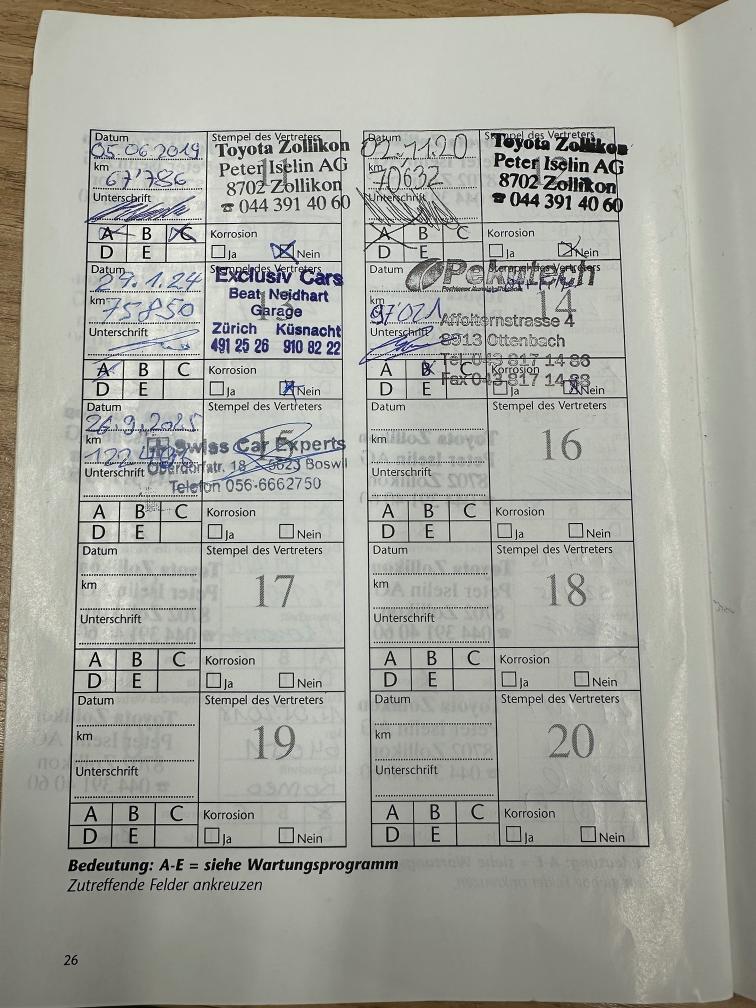 Datum
05.06 2019
km
67'786
Unterschrift
Stempel des Vertreters
11
Toyota Zollikon
Peter Iselin AG
8702 Zollikon
☎ 044 391 40 60
A B C
D E
Korrosion
Ja Nein
Datum
02.11.20
km
70632
Unterschrift
Stempel des Vertreters
Toyota Zollikon
Peter Iselin AG
8702 Zollikon
☎ 044 391 40 60
A B C
D E
Korrosion
Ja Nein
Datum
29.1.24
km
75850
Unterschrift
Stempel des Vertreters
13
Exclusiv Cars
Beat Neidhart
Garage
Zürich Küsnacht
491 25 26 910 82 22
A B C
D E
Korrosion
Ja Nein
Datum
km
97'021
Unterschrift
Stempel des Vertreters
14
Pekatech
Affolternstrasse 4
8913 Ottenbach
Tel 043 817 14 86
Fax 043 817 14 88
A B C
D E
Korrosion
Ja Nein
Datum
26.9.2025
km
Unterschrift
Stempel des Vertreters
15
Swiss Car Experts
Oberdorfstr. 18 5623 Boswil
Telefon 056-6662750
A B C
D E
Korrosion
Ja Nein
Datum
km
Unterschrift
Stempel des Vertreters
16
A B C
D E
Korrosion
Ja Nein
Datum
km
Unterschrift
Stempel des Vertreters
17
A B C
D E
Korrosion
Ja Nein
Datum
km
Unterschrift
Stempel des Vertreters
18
A B C
D E
Korrosion
Ja Nein
Datum
km
Unterschrift
Stempel des Vertreters
19
A B C
D E
Korrosion
Ja Nein
Datum
km
Unterschrift
Stempel des Vertreters
20
A B C
D E
Korrosion
Ja Nein
Bedeutung: A-E = siehe Wartungsprogramm
Zutreffende Felder ankreuzen
26